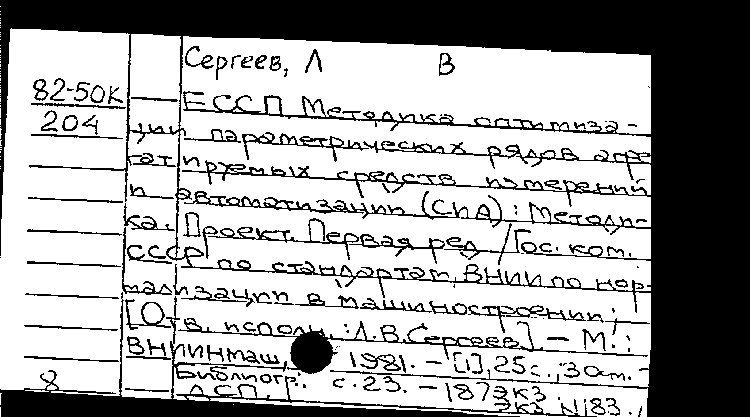 Сергеев, Л В
82-50К
204
ЕССП. Методика оптимиза-
ции параметрических рядов агре
гатируемых средств измерений
и автоматизации (СИА) : Методи-
ка. Проект. Первая ред / Гос. ком.
СССР по стандартам, ВНИИ по нор-
мализации в машиностроении;
[Отв. исполн. : Л.В.Сергеев]. – М. :
ВНИИНмаш, 1981. – [1], 25с., 3 см. –
Библиогр. с.23. – 187экз
ДСП, экз N183.
8